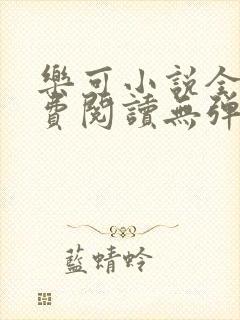 樂可小說全
費閱讀無彈
藍蜻蛉